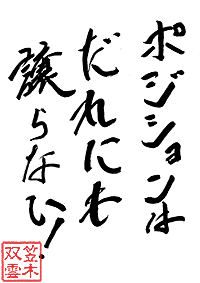 ポジションは
だれにも
譲らないッ!
笠木
双雲